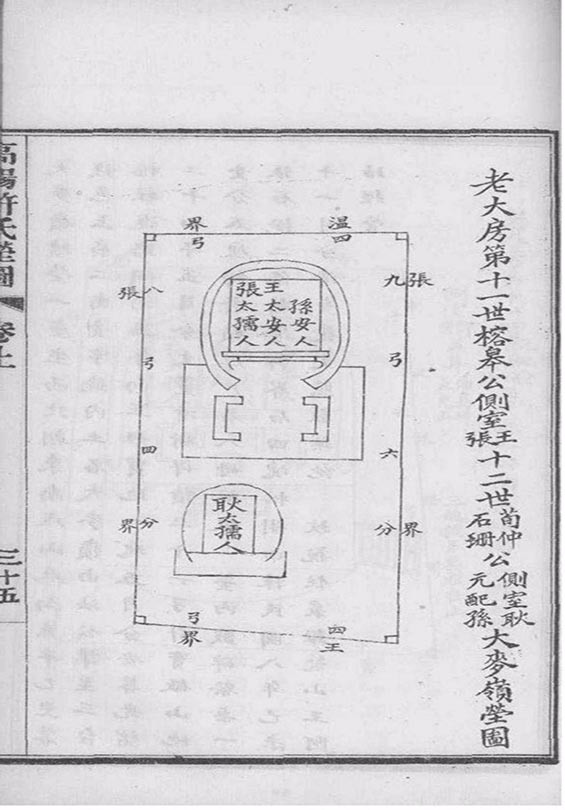 老大房第十一世榕皋公側室王張十二世荀仲石珊公側室耿元配孫大麥嶺塋圖
温四弓界
張九弓六分界
孫安人
王太安人
張太孺人
張八弓四分界
耿太孺人
王四弓界
高陽許氏塋圖
卷上
三十五